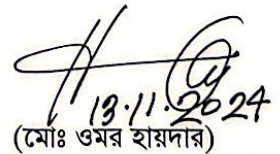 13.11.2024
(মোঃ ওমর হায়দার)